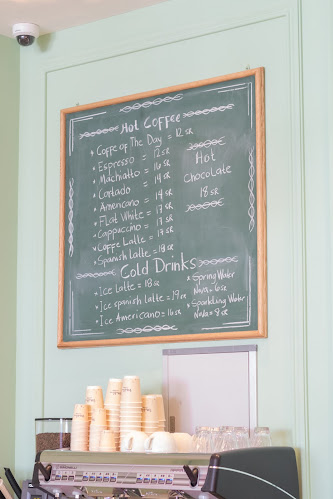 Hot Coffee
* Coffe of The Day = 12 SR
* Espresso = 12 SR
* Machiatto = 16 SR
* Cortado = 14 SR
* Americano = 14 SR
* Flat White = 17 SR
* Cappuccino = 17 SR
* Coffe Latte = 17 SR
* Spanish Latte = 18 SR
Hot
Chocolate
18 SR
Cold Drinks
* Ice Latte = 18 SR
* Ice spanish latte = 19 SR
* Ice Americano = 16 SR
* Spring Water
Nova = 6 SR
* Sparkling Water
Nova = 8 SR